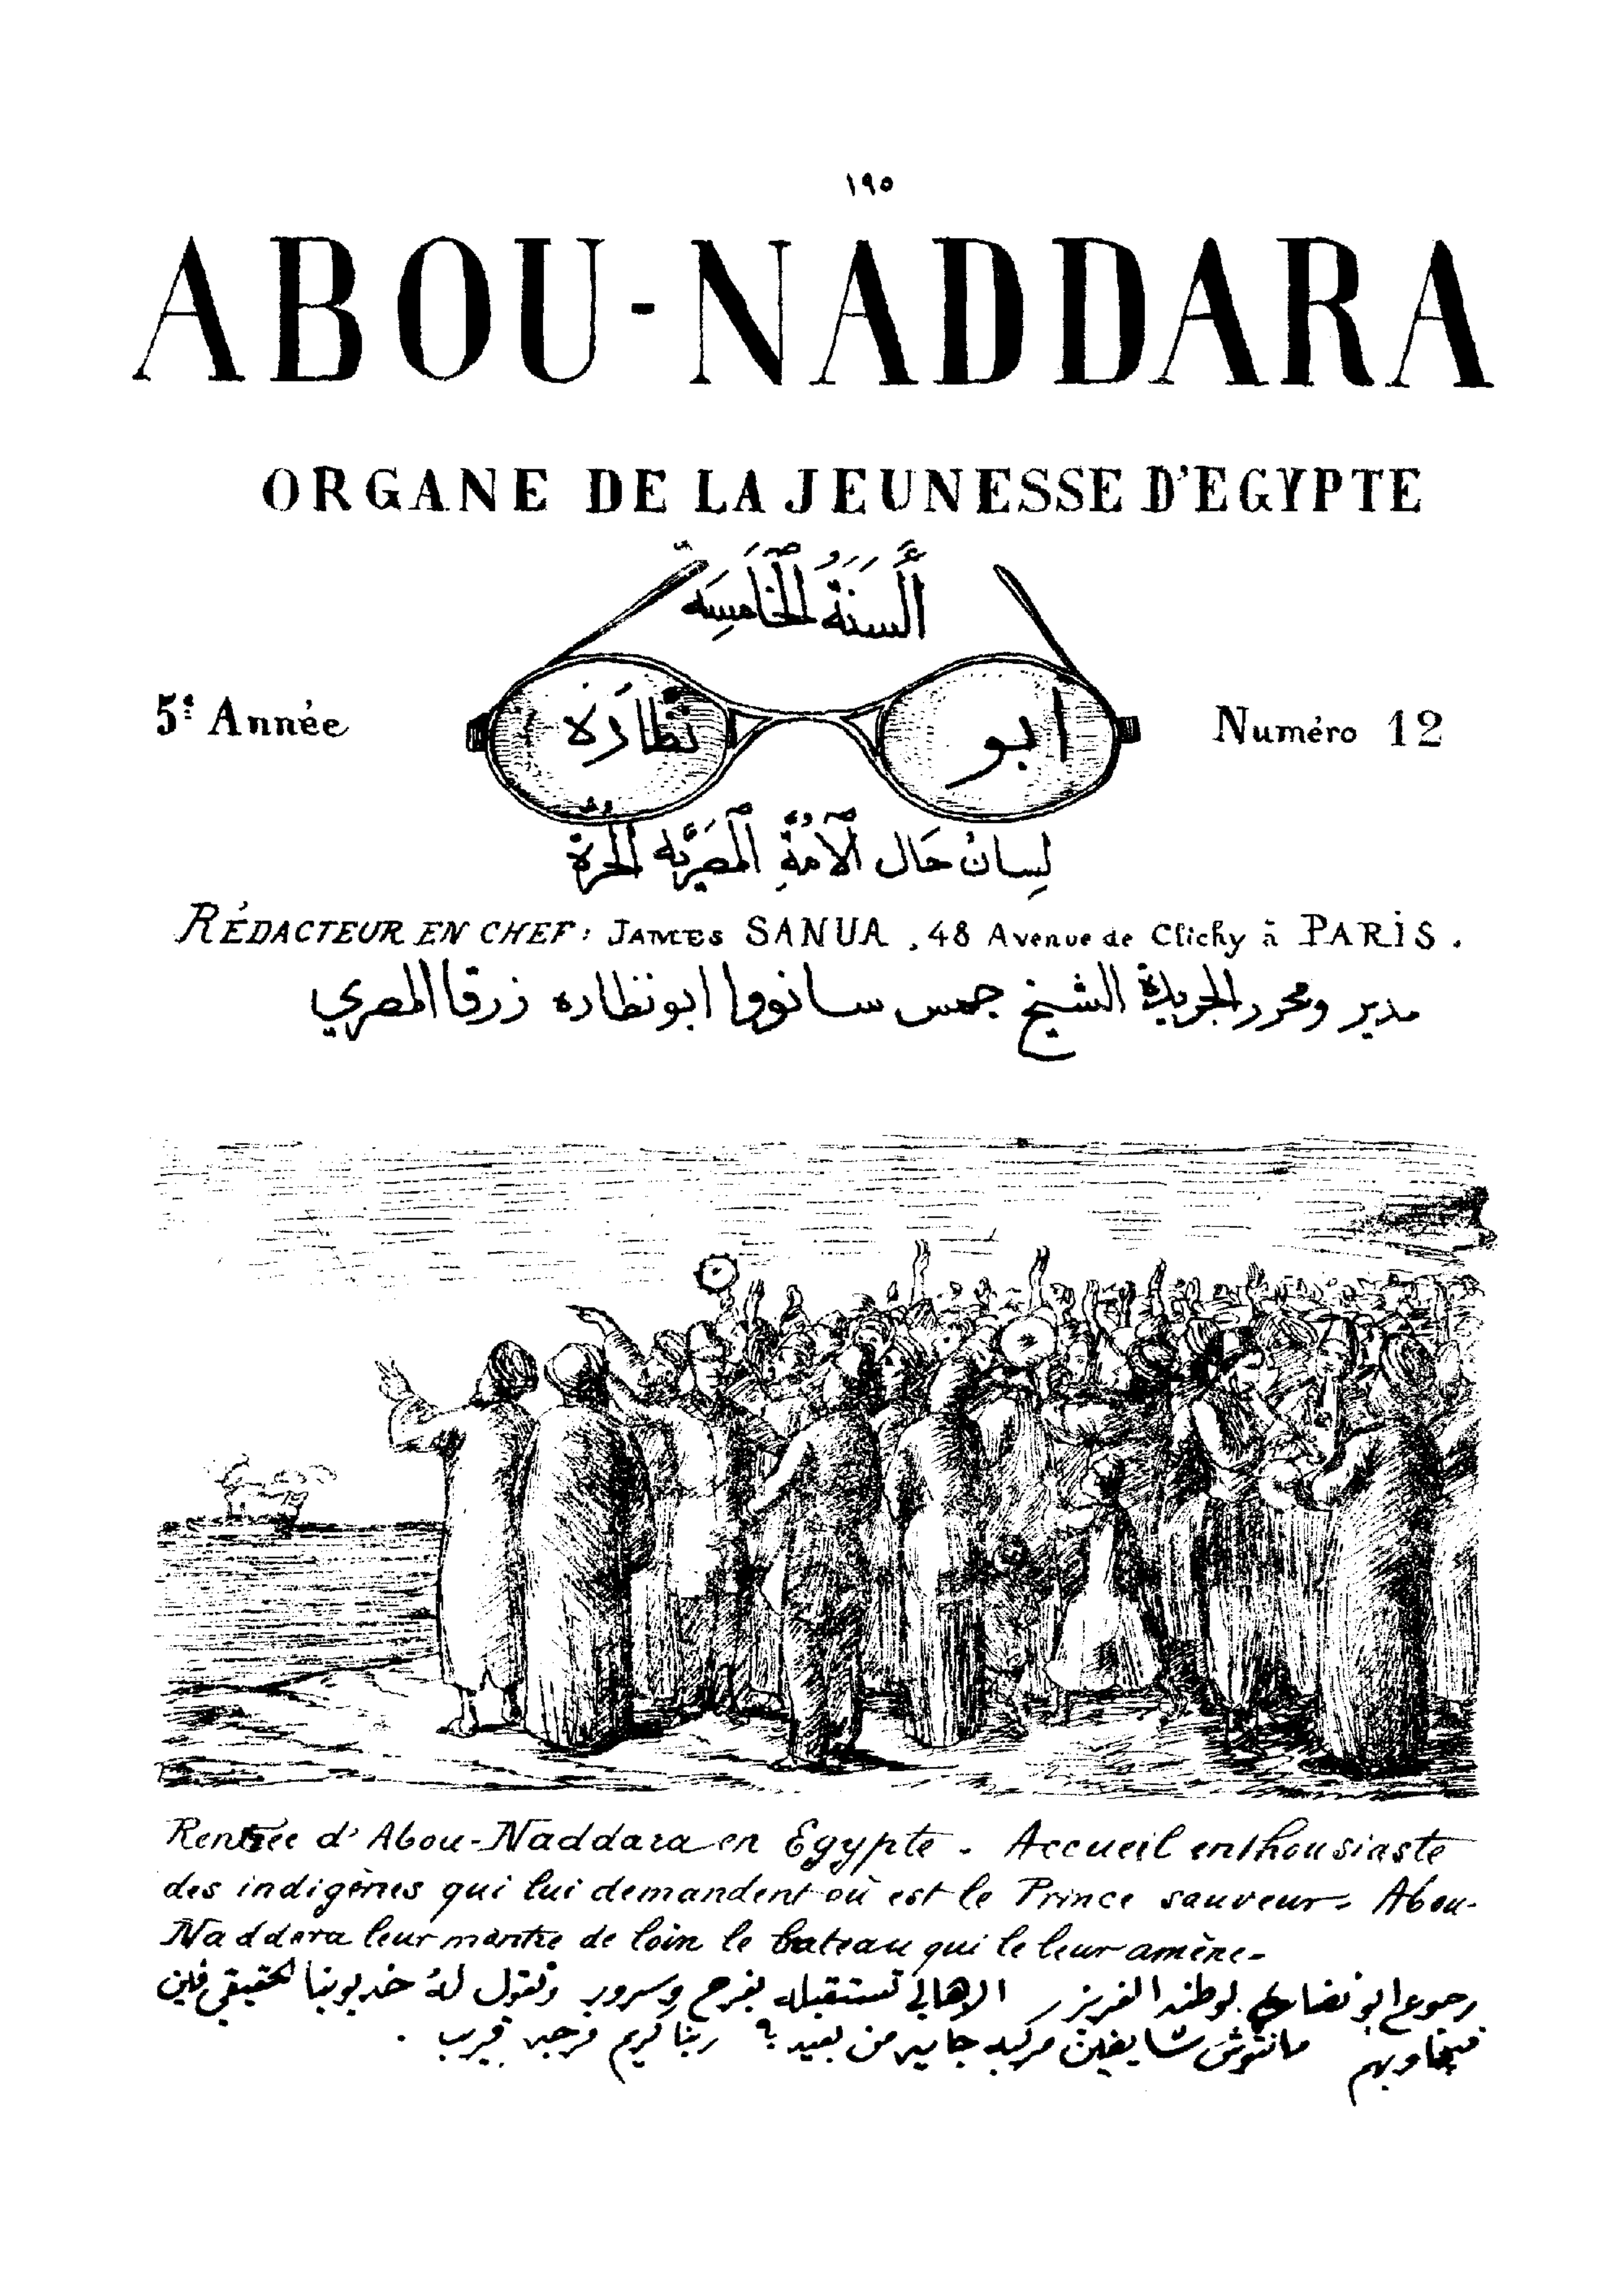 ١٩٥
ABOU-NADDARA
ORGANE DE LA JEUNESSE D'EGYPTE
أَلسَنَةُ الخَامِسَه
5e Année
ابو نظَارَة
Numéro 12
لِسانْ حَال الأُمةِ المصَرِيَه الحُرة
RÉDACTEUR EN CHEF: JAMES SANUA, 48 Avenue de Clichy à PARIS.
مدير ومحرر الجريدة الشيخ جمس سانووا ابو نظاره زرقا المصري
Rentrée d'Abou-Naddara en Egypte. Accueil enthousiaste
des indigènes qui lui demandent où est le Prince sauveur. Abou-
Naddara leur montre de loin le bateau qui le leur amène-
رجوع ابو نضاره لوطنه العزيز الاهالي تستقبله بفرح وسرور وتقول له خديوينا الحقيقي فين
فيجاوبهم مانتوش شايفين مركبه جايه من بعيد ؟ ربنا كريم فرجه قريب .